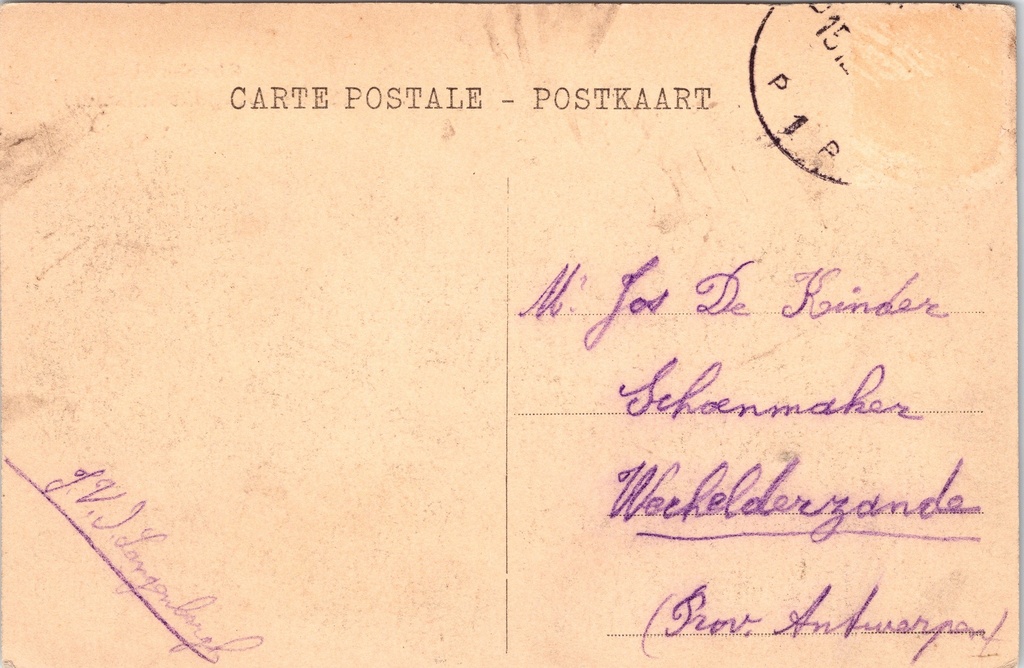 CARTE POSTALE - POSTKAART
15
P 1 P
Mr Jos De Kinder
Schoenmaker
Wechelderzande
(Prov. Antwerpen)
J. V. D.